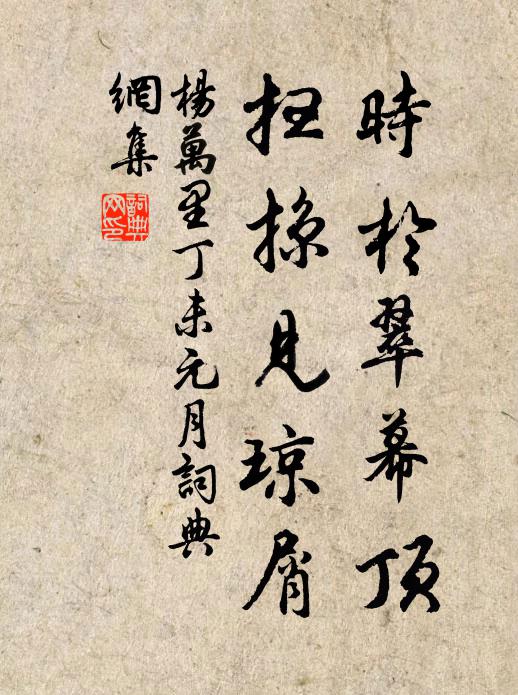 時於翠幕頂
扭掠見琼屑
楊萬里丁未元月詞典
網集
詞典
网印